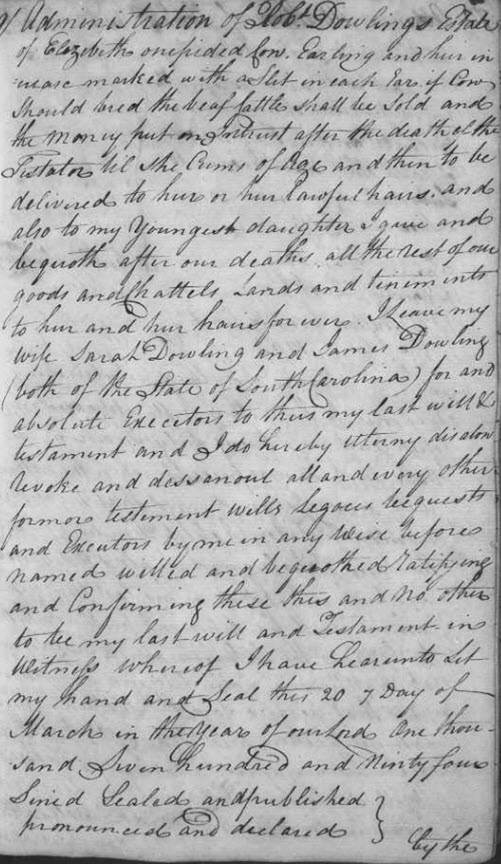 9/ Administration of Robt. Dowlings Estate
of Elizebeth one pided Cow. Earling and hur in
=crease marked with a Slit in each Ear. if Cow
Should bred the beaf Cattle shall be Sold and
the Money put on Intrust after the death of the
Tistator til she Cums of Age and then to be
delivered to hur or hur lawful hairs. and
also to my Youngest daughter I give and
bequoth after our deaths all the rest of our
goods and Chattels Lands and tinements
to hur and hur hairs for ever. I leave my
wife Sarah Dowling and James Dowling
(both of the State of South Carolina) for and
absolute Execitors to this my last will &
testament and I do hereby utterny disalow
revoke and dessanoul all and every other
former testement wills Legoces bequests
and Excutors by me in any Wise before
named willed and bequothed Ratifying
and Confirming these this and no other
to be my last will and Testament in
Witness whereof I have hearunto Set
my hand and Seal this 20 7 Day of
March in the Year of our Lord One thou-
sand Siven hundred and Ninty four
Sined Sealed and published
pronounced and declared } by the